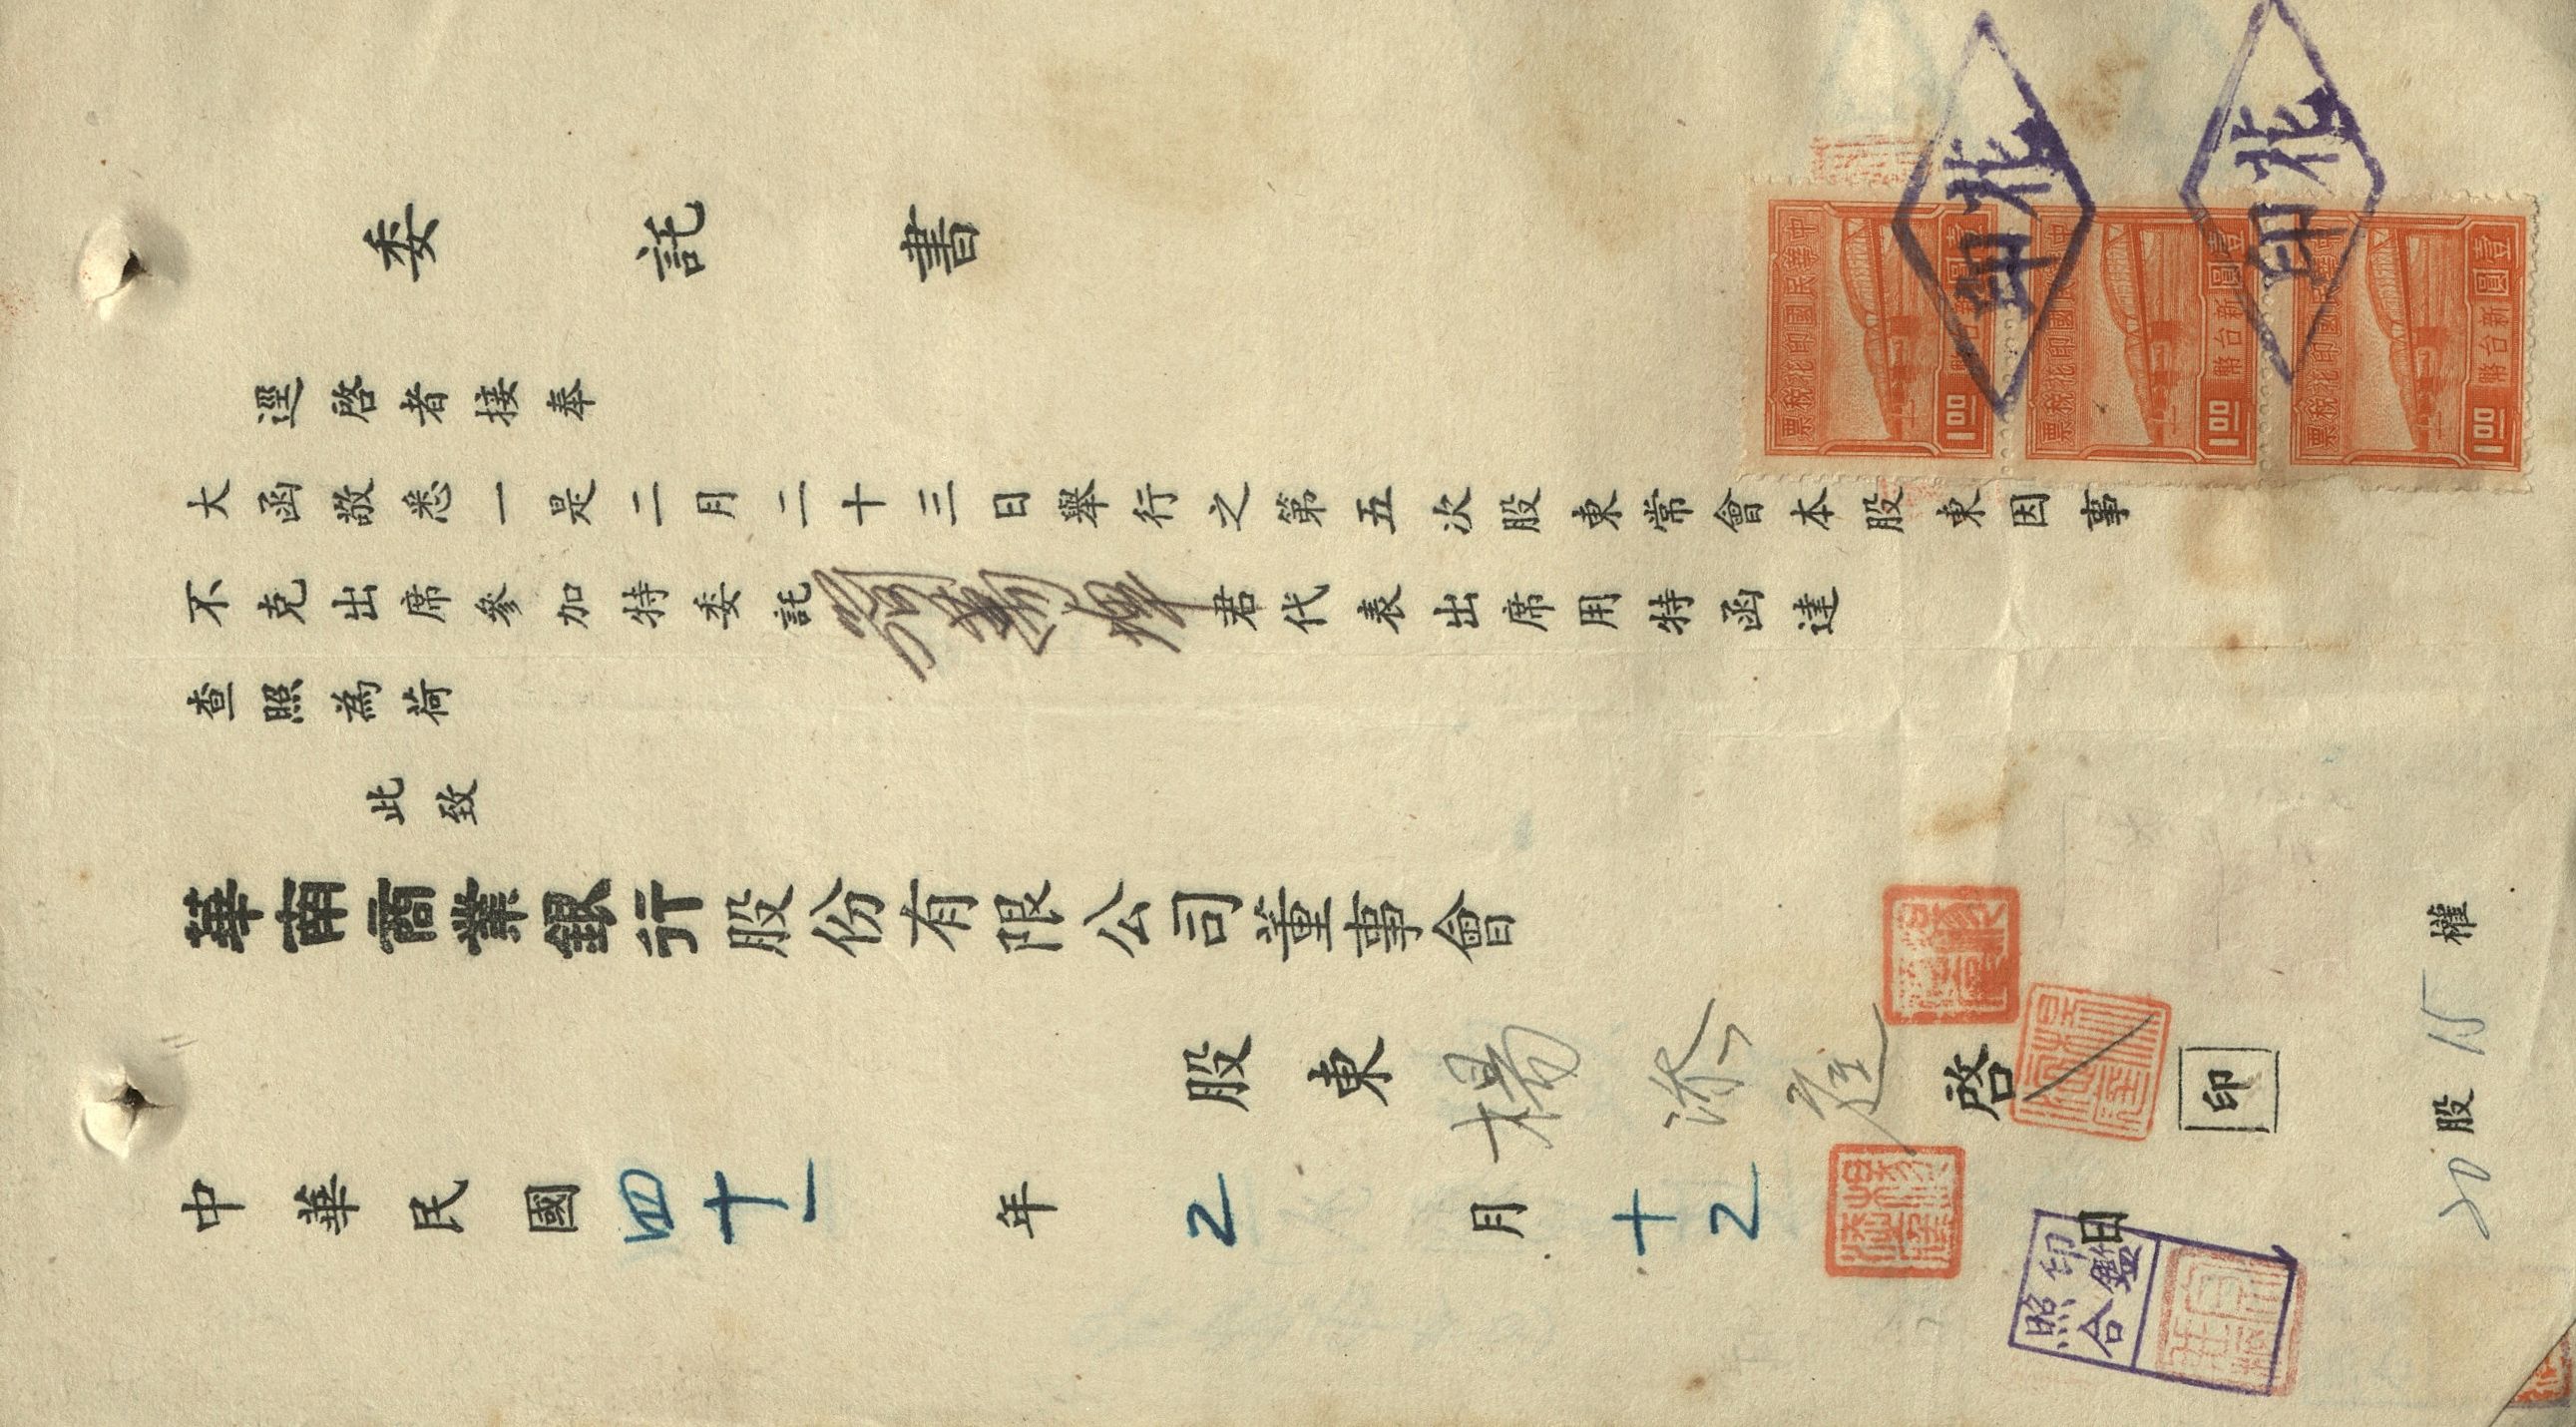 委託書
逕啓者接奉
大函敬悉一是二月二十三日舉行之第五次股東常會本股東因事
不克出席參加特委託 君代表出席用特函達
查照為荷
此致
華南商業銀行股份有限公司董事會
股東楊添庭啓 印
中華民國四十一年2月十2日
20股15權
中華民國印花稅票
壹圓新台幣
1.00
中華民國印花稅票
壹圓新台幣
1.00
中華民國印花稅票
壹圓新台幣
1.00
花印
花印
印鑑照合